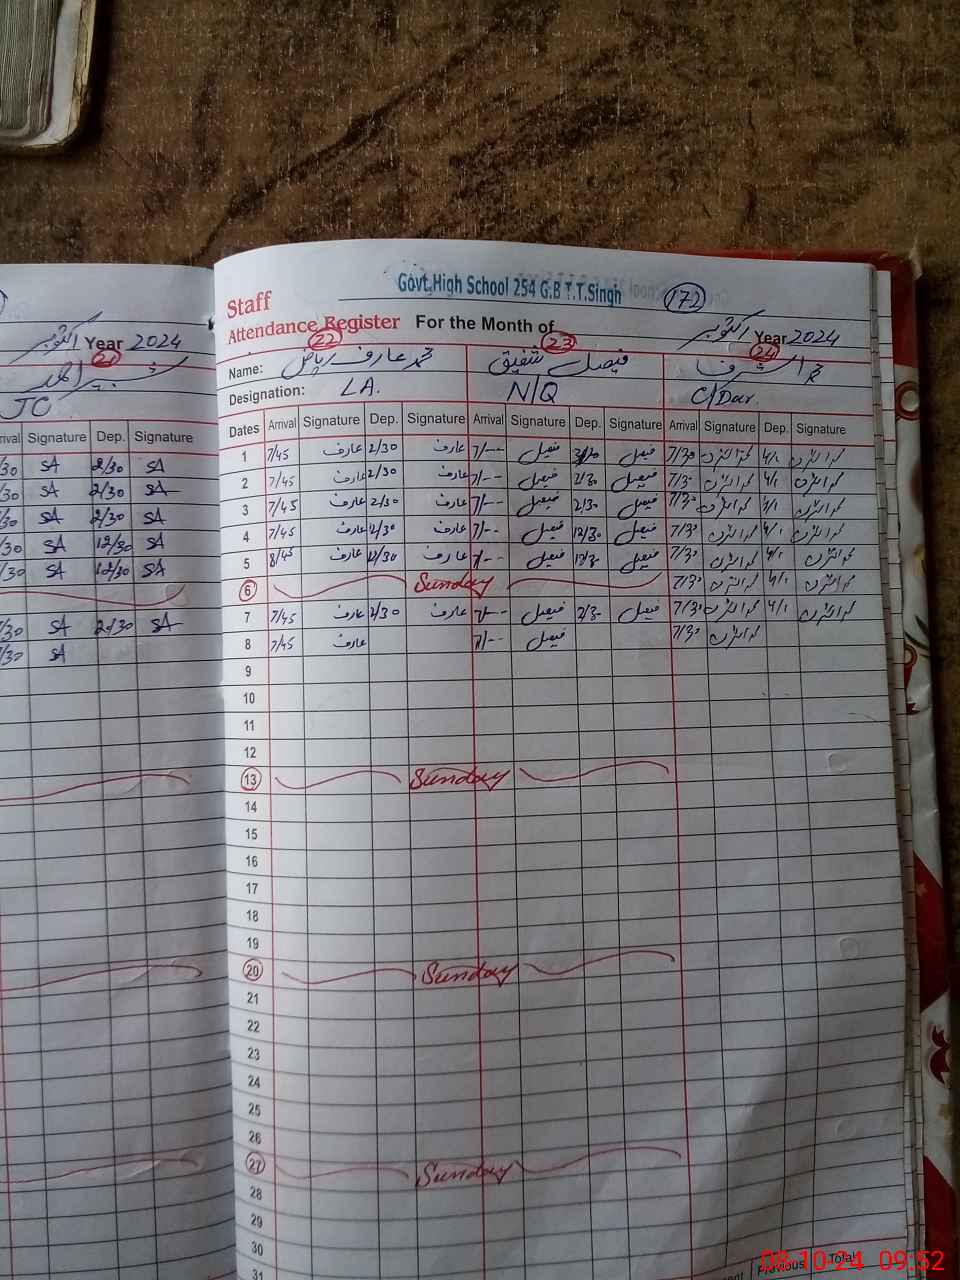 Govt, High School 254 G.B T.T.Singh
172
Staff
Attendance Register For the Month of اکتوبر Year 2024
اکتوبر Year 2024
21
شبیر احمد
JC
22 23 24
Name: محمد عارف ریاض فیصل شفیق محمد اشرف
Designation: LA. N/Q C/Dar.
Arrival Signature Dep. Signature
Dates Arrival Signature Dep. Signature Arrival Signature Dep. Signature Arrival Signature Dep. Signature
/30 SA 2/30 SA
/30 SA 2/30 SA
/30 SA 2/30 SA
/30 SA 12/30 SA
/30 SA 12/30 SA
/30 SA 2/30 SA
/30 SA
1 7/45 عارف 2/30 عارف 7/-- فیصل فیصل 7/30 4/1
2 7/45 عارف 2/30 عارف 7/-- فیصل 2/30 فیصل 7/30 4/1
3 7/45 عارف 2/30 عارف 7/-- فیصل 2/30 فیصل 7/30 4/1
4 7/45 عارف 12/30 عارف 7/-- فیصل 12/30 فیصل 7/30 4/1
5 8/45 عارف 12/30 عارف 7/-- فیصل 12/30 فیصل 7/30 4/1
6 Sunday 7/30 4/1
7 7/45 عارف 2/30 عارف 7/-- فیصل 2/30 فیصل 7/30 4/1
8 7/45 عارف 7/-- فیصل 7/30
9
10
11
12
13 Sunday
14
15
16
17
18
19
20 Sunday
21
22
23
24
25
26
27 Sunday
28
29
30
31
Previous Total
08-10-24 09:52